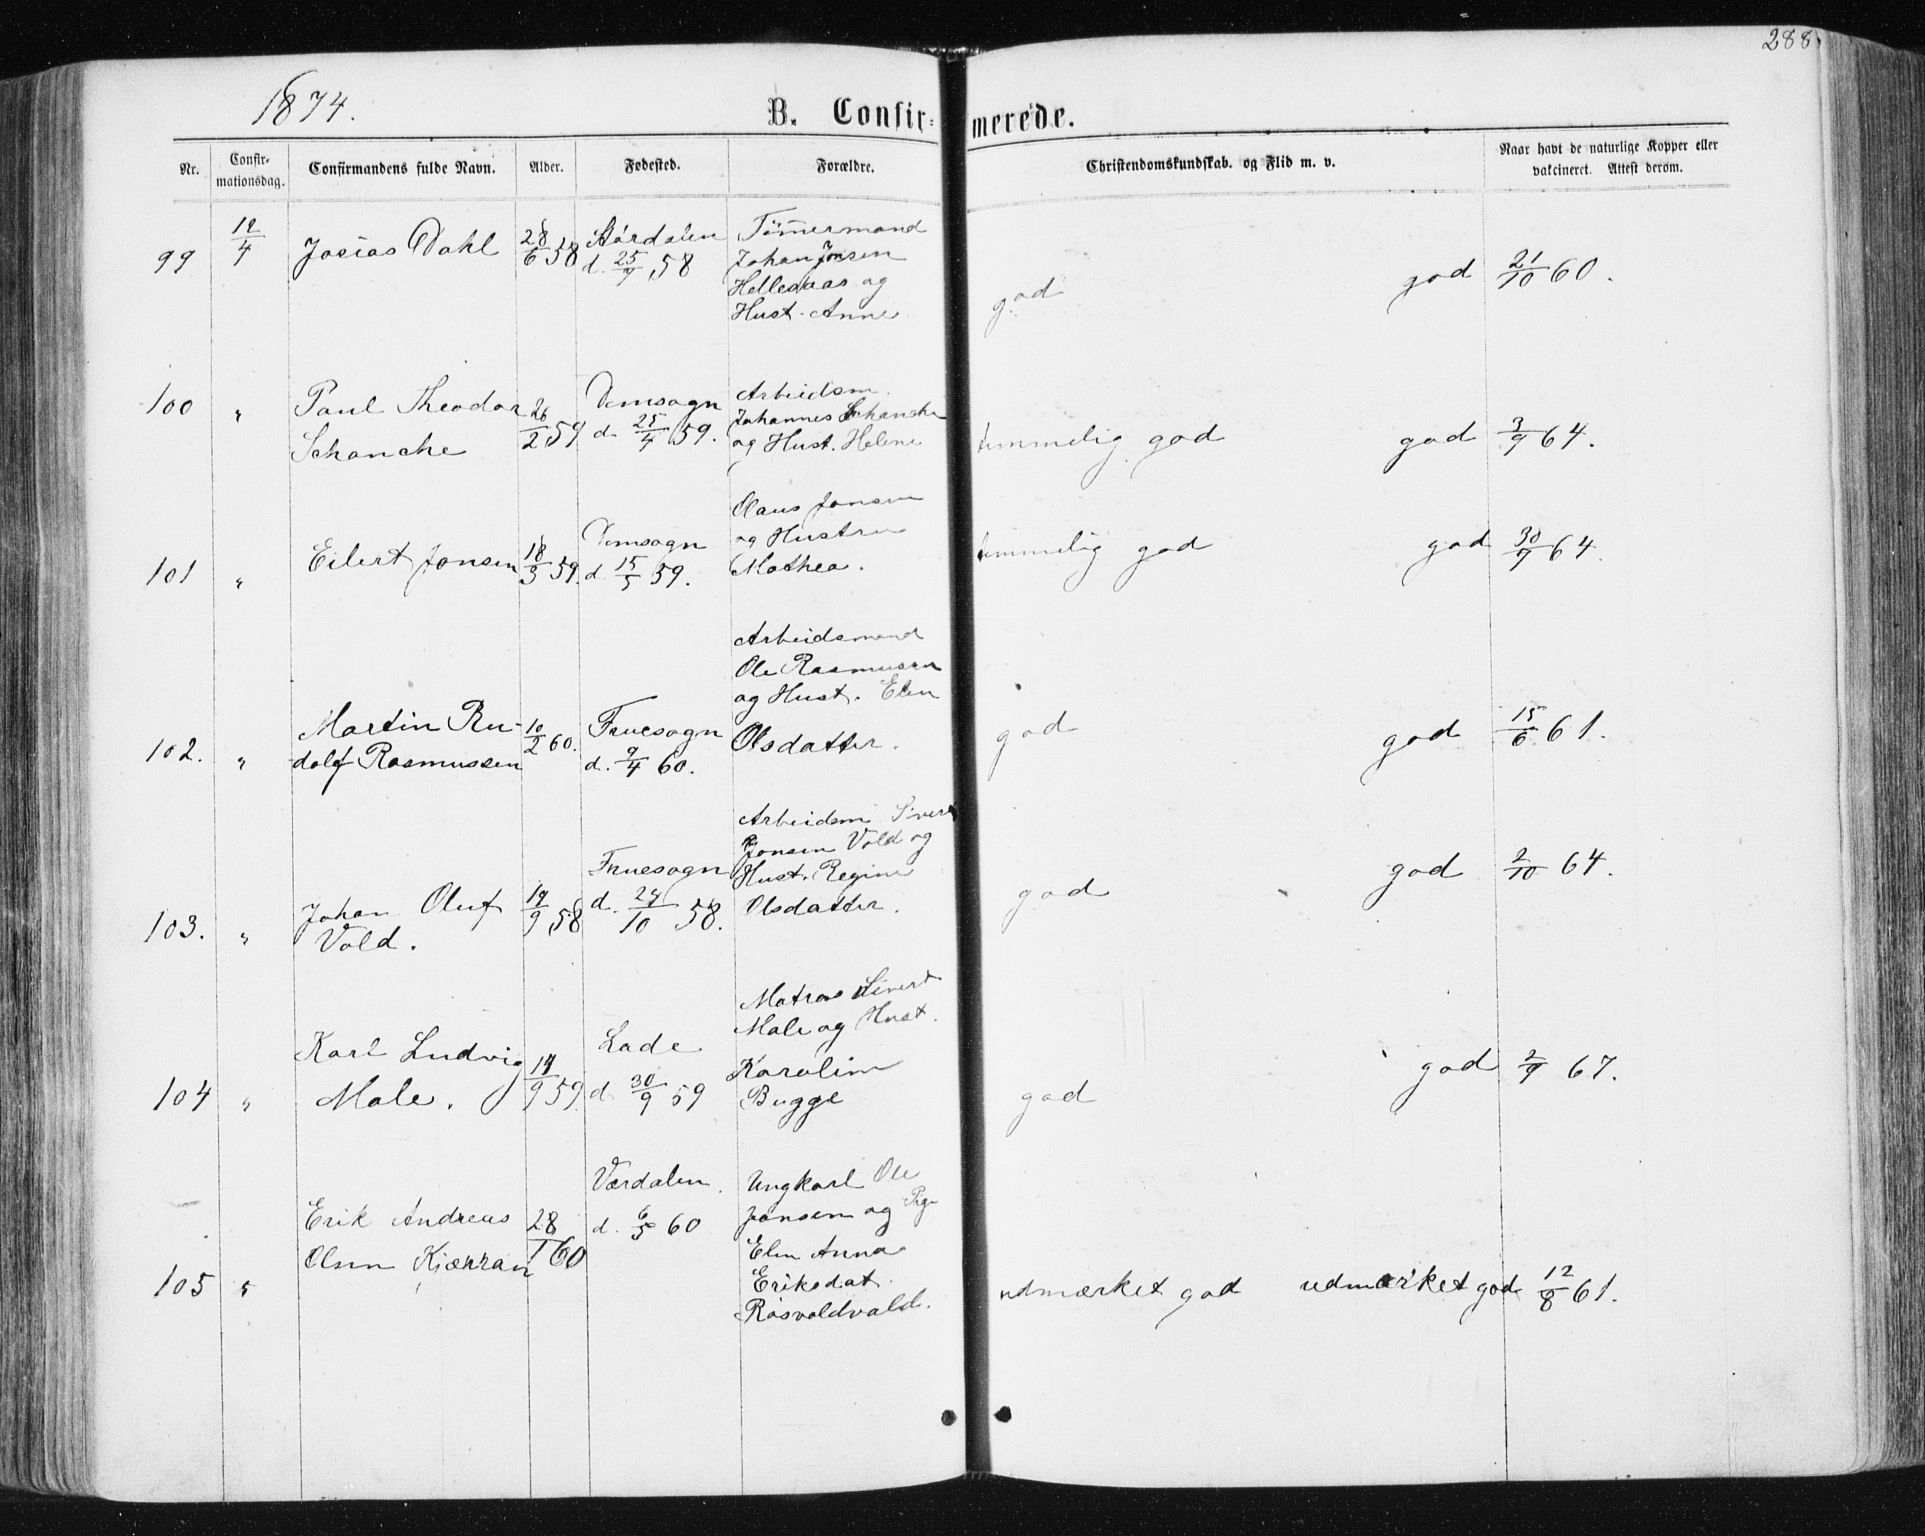 288
1874.
B. Confir-
merede.
Nr.
Confir-
mationsdag.
Confirmandens fulde Navn.
Alder.
Fødested.
Forældre.
Christendomskundskab. og Flid m. v.
Naar havt de naturlige Kopper eller
vakcineret. Attest derom.
99
19/4
Josias Dahl
28/6 58
Størdalen
d. 25/7 58
Tömmermand
Johan Jonsen
Hellesaas og
Hust. Anne
god
god
21/10 60.
100
"
Paul Theodor
Schanche
26/2 59
Domsogn
d. 25/4 59.
Arbeidsm.
Johannes Schanche
og Hust. Helene
temmelig god
god
3/9 64.
101
"
Eilert Jonsen
18/3 59.
Domsogn
d. 15/5 59.
Claus Jonsen
og Hustru
Mathea.
temmelig god
god
30/7 64.
102.
"
Martin Ru-
dolf Rasmussen
10/2 60.
Fruesogn
d. 9/4 60.
Arbeidsmand
Ole Rasmusen
og Hust. Elen
Olsdatter.
god
god
15/6 61.
103.
"
Johan Oluf
Vold.
19/9 58
Fruesogn
d. 24/10 58.
Arbeidsm Sivert
Jonsen Vold og
Hust. Regine
Olsdatter.
god
god
2/10 64.
104
"
Karl Ludvig
Male.
14/9 59.
Lade
d. 30/9 59
Matros Sivert
Male og Hust.
Karoline
Bugge
god
god
2/9 67.
105
"
Erik Andreas
Olsen Kjærran
28/1 60
Værdalen.
d. 6/5 60
Ungkarl Ole
Jonsen og Pige
Elen Anna
Eriksdat.
Rosvoldvald.
udmærket god
udmærket god
12/8 61.